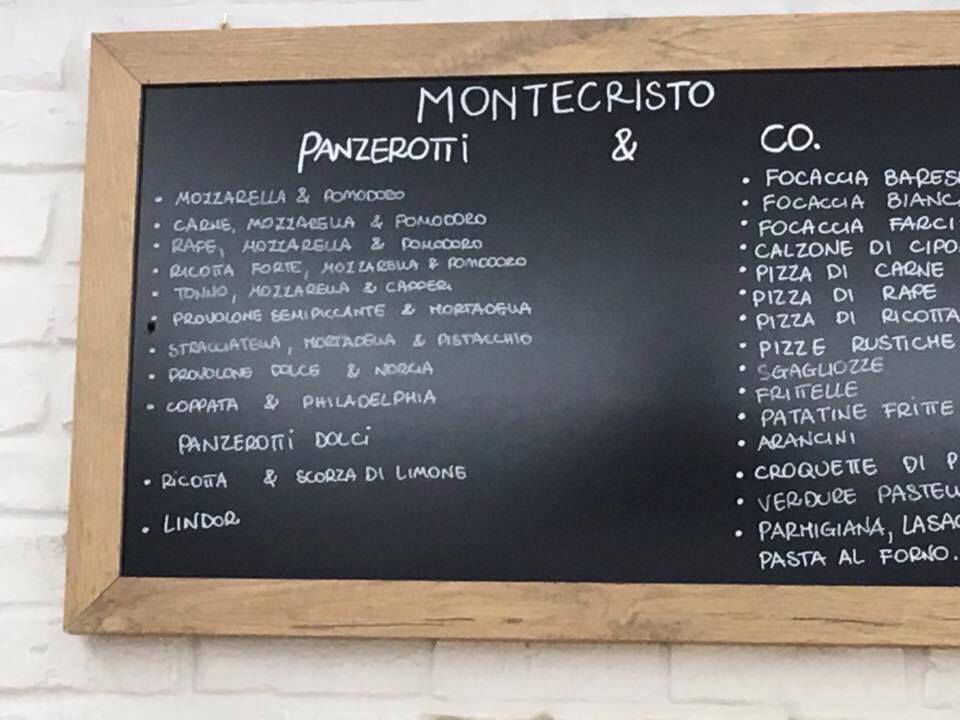 MONTECRISTO
PANZEROTTI & CO.
• MOZZARELLA & POMODORO
• CARNE, MOZZARELLA & POMODORO
• RAPE, MOZZARELLA & POMODORO
• RICOTTA FORTE, MOZZARELLA & POMODORO
• TONNO, MOZZARELLA & CAPPERI
• PROVOLONE SEMIPICCANTE & MORTADELLA
• STRACCIATELLA, MORTADELLA & PISTACCHIO
• PROVOLONE DOLCE & NORCIA
• COPPATA & PHILADELPHIA
PANZEROTTI DOLCI
• RICOTTA & SCORZA DI LIMONE
• LINDOR
• FOCACCIA BARES
• FOCACCIA BIANC
• FOCACCIA FARCI
• CALZONE DI CIPO
• PIZZA DI CARNE
• PIZZA DI RAPE
• PIZZA DI RICOTTA
• PIZZE RUSTICHE
• SGAGLIOZZE
• FRITTELLE
• PATATINE FRITTE
• ARANCINI
• CROQUETTE DI P
• VERDURE PASTELL
• PARMIGIANA, LASAG
PASTA AL FORNO.